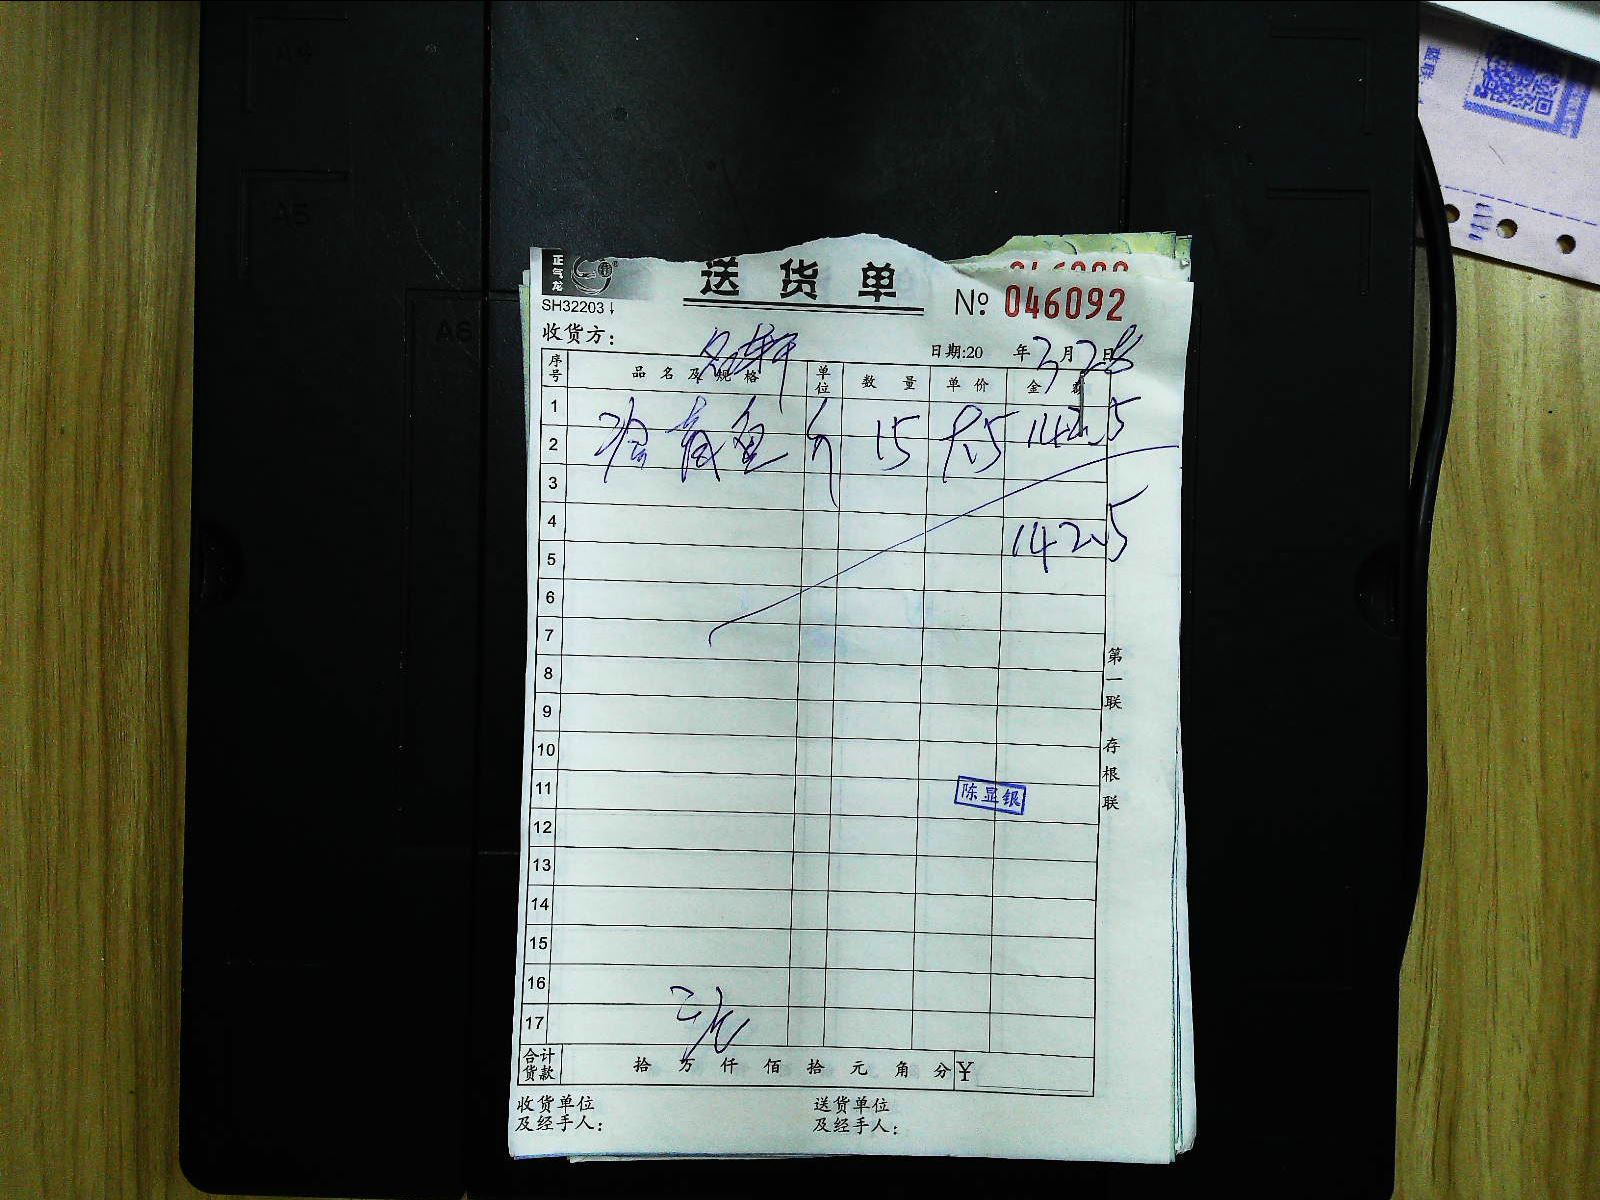 A4
A5
A6
正气龙
送货单
SH32203
№ 046092
收货方：
日期:20 年3月28日
序号 品名及规格 单位 数量 单价 金额
1
斤 15 9.5 142.5
2
3
4
142.5
5
6
7
8
9
10
11
陈显银
12
13
14
15
16
17
合计货款 拾 万 仟 佰 拾 元 角 分 ¥
收货单位及经手人：
送货单位及经手人：
第一联 存根联